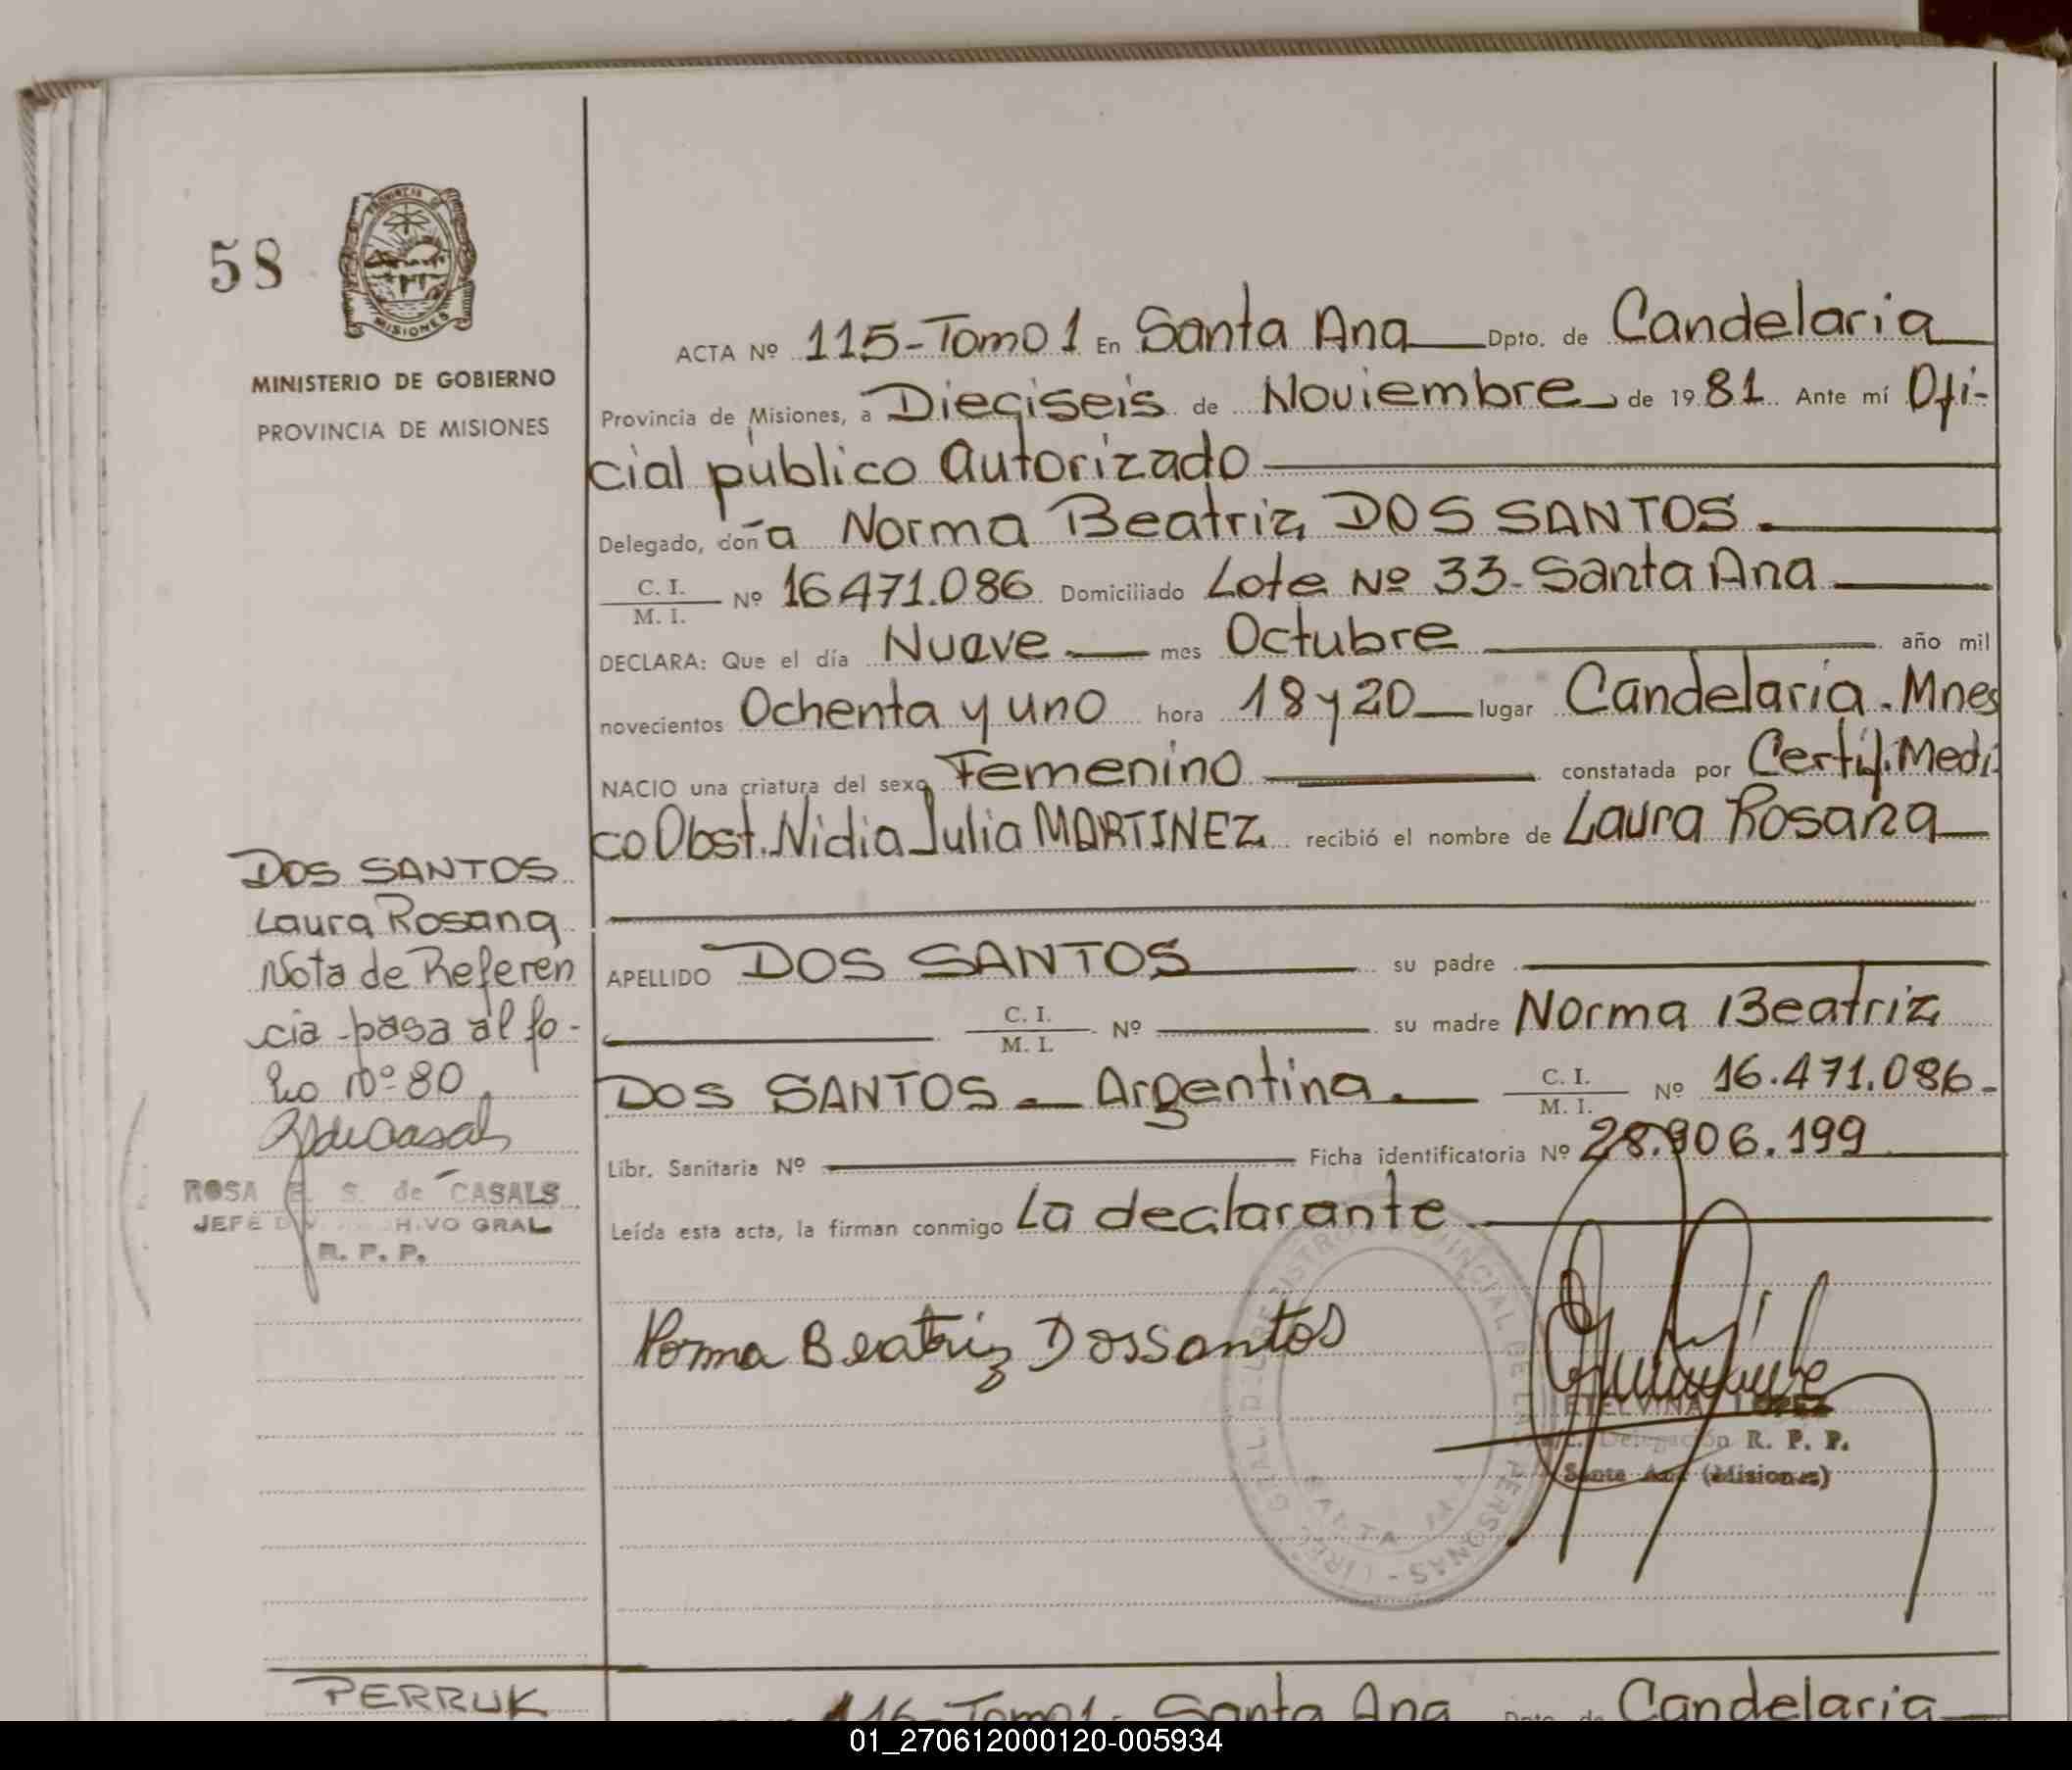 58
PROVINCIA DE
MISIONES
MINISTERIO DE GOBIERNO
PROVINCIA DE MISIONES
ACTA Nº 115-Tomo 1 En Santa Ana Dpto. de Candelaria
Provincia de Misiones, a Dieciseis de Noviembre de 1981 Ante mí Ofi-
cial público Autorizado
Delegado, doña Norma Beatriz DOS SANTOS.
C. I.
M. I. Nº 16471.086 Domiciliado Lote Nº 33-Santa Ana
DECLARA: Que el día Nueve mes Octubre año mil
novecientos Ochenta y uno hora 18 y 20 lugar Candelaria. Mnes
NACIO una criatura del sexo Femenino constatada por Certif. Medi
co Obst. Nidia Julia MARTINEZ recibió el nombre de Laura Rosana
APELLIDO DOS SANTOS su padre
C. I.
M. I. Nº su madre Norma Beatriz
DOS SANTOS - Argentina. C. I.
M. I. Nº 16.471.086-
Libr. Sanitaria Nº Ficha identificatoria Nº 28.906.199
Leída esta acta, la firman conmigo La declarante
Norma Beatriz Dossantos
ETELVINA LOPEZ
Delegación R. P. P.
Santa Ana (Misiones)
DOS SANTOS
Laura Rosana
Nota de Referen
cia - pasa al fo-
lio Nº 80
ROSA E. S. de CASALS
JEFE HIVO GRAL
R. P. P.
PERRUK
116-Tomo 1. Santa Ana Dpto. de Candelaria
01_270612000120-005934